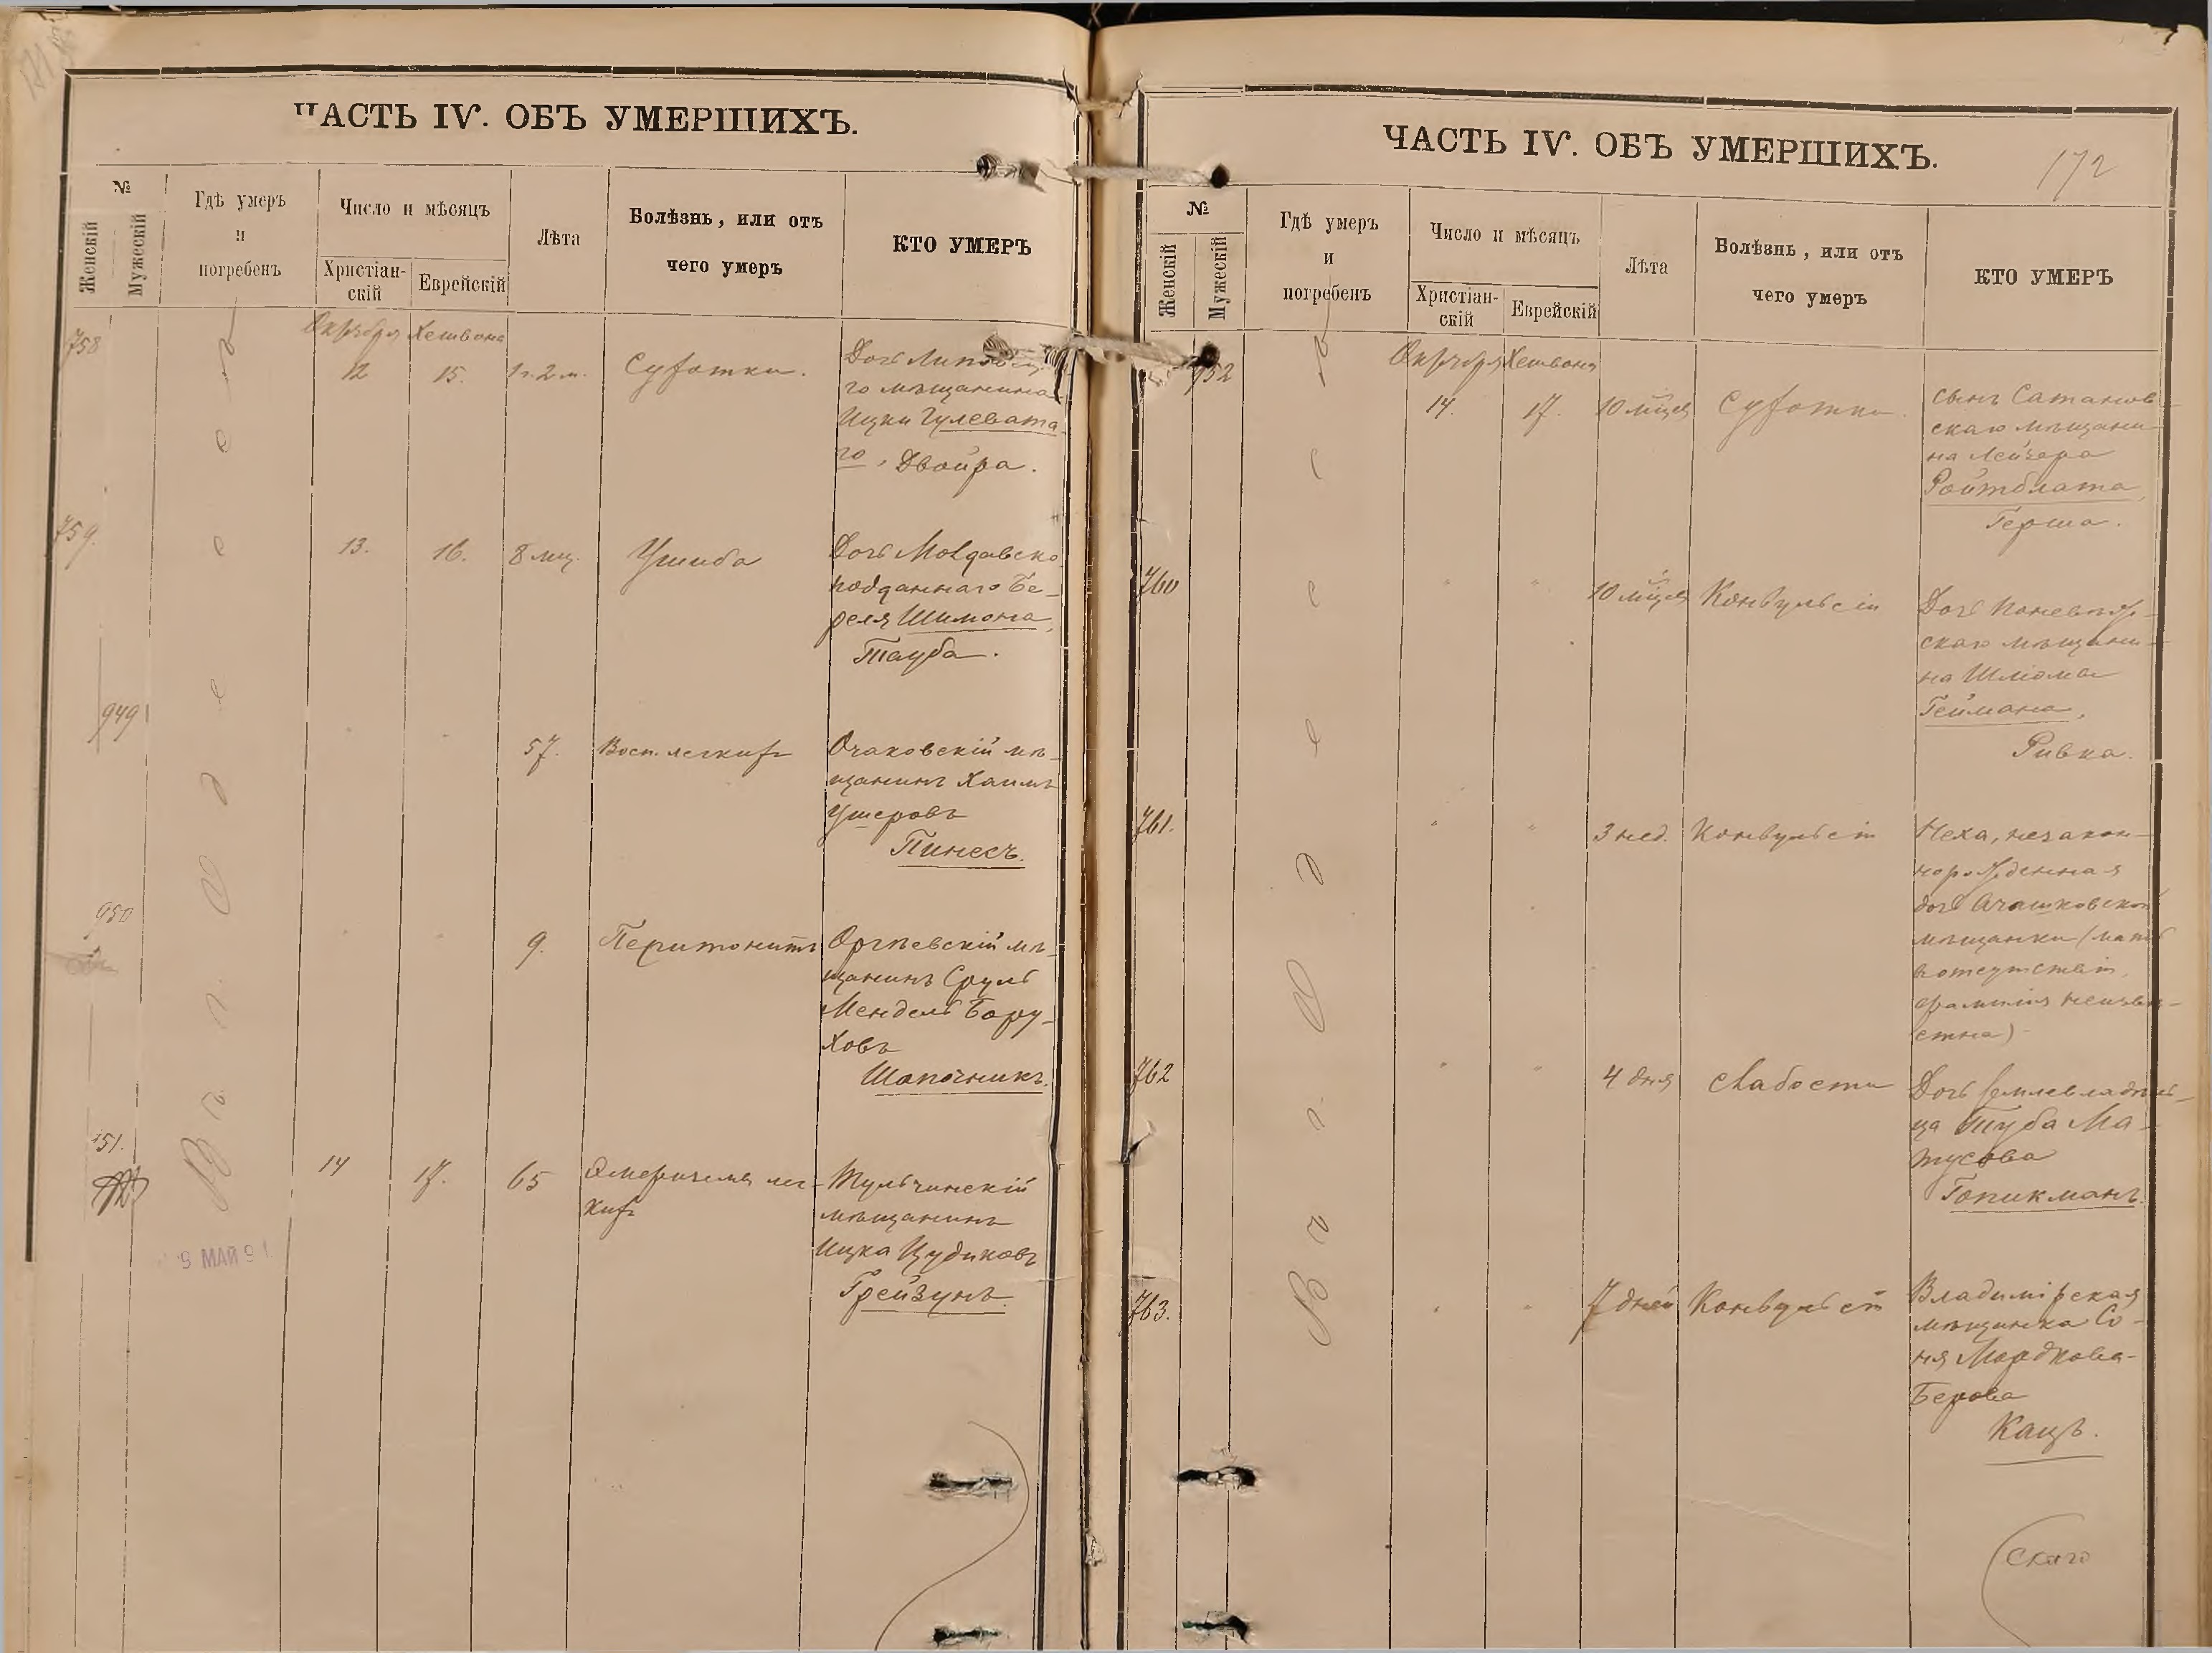 ЧАСТЬ IV. ОБЪ УМЕРШИХЪ.
№
Женскій
Мужескій
Гдѣ умеръ
и
погребенъ
Число и мѣсяцъ
Христіан-
скій
Еврейскій
Лѣта
Болѣзнь, или отъ
чего умеръ
КТО УМЕРЪ
Октября Хешвона
758
12
15.
1 г. 2 м.
Сухотки.
Дочь
го мѣщанина
Ицки Гулевата-
го, Двойра.
759.
13.
16.
8 мц.
Ушиба
Дочь Молдавско
подданнаго Бе-
реля Шимона,
Тауба.
949
57.
Восп. легкихъ
Очаковскій мѣ-
щанинъ Хаимъ
Ушеровъ
Пинесъ.
950
9.
Перитонитъ
Оргѣевскій мѣ-
щанинъ Сруль
Мендель Бору-
ховъ
Шапочникъ.
951.
14
17.
65
лег-
кихъ
Тульчинскій
мѣщанинъ
Ицка Цудиковъ
Грейзунъ.
Въ г. Одессѣ
9 МАЙ 91
ЧАСТЬ IV. ОБЪ УМЕРШИХЪ.
172
№
Женскій
Мужескій
Гдѣ умеръ
и
погребенъ
Число и мѣсяцъ
Христіан-
скій
Еврейскій
Лѣта
Болѣзнь, или отъ
чего умеръ
КТО УМЕРЪ
Октября Хешвона
952
14.
17.
10 мцевъ
Сухотки.
сынъ Сатанов-
скаго мѣщани-
на Лейзера
Ройтблата,
Герша.
760
"
"
10 мцевъ
Конвульсіи
Дочь
скаго мѣщани-
на Шлёма
Геймана,
Ривка.
761.
"
"
3 нед.
Конвульсіи
Неха, незакон-
норожденная
дочь Ачашковской
мѣщанки (мать
в отсутствіи,
фамилія неизвѣ-
стна)
762
"
"
4 дня
слабости
Дочь землевладѣль-
ца Туба Ма-
тусова
Гопикманъ.
763.
"
"
7 дней
Конвульсіи
Владимірская
мѣщанка Со-
ня Мордкова-
Берова
Кацъ.
Въ г. Одессѣ
ского